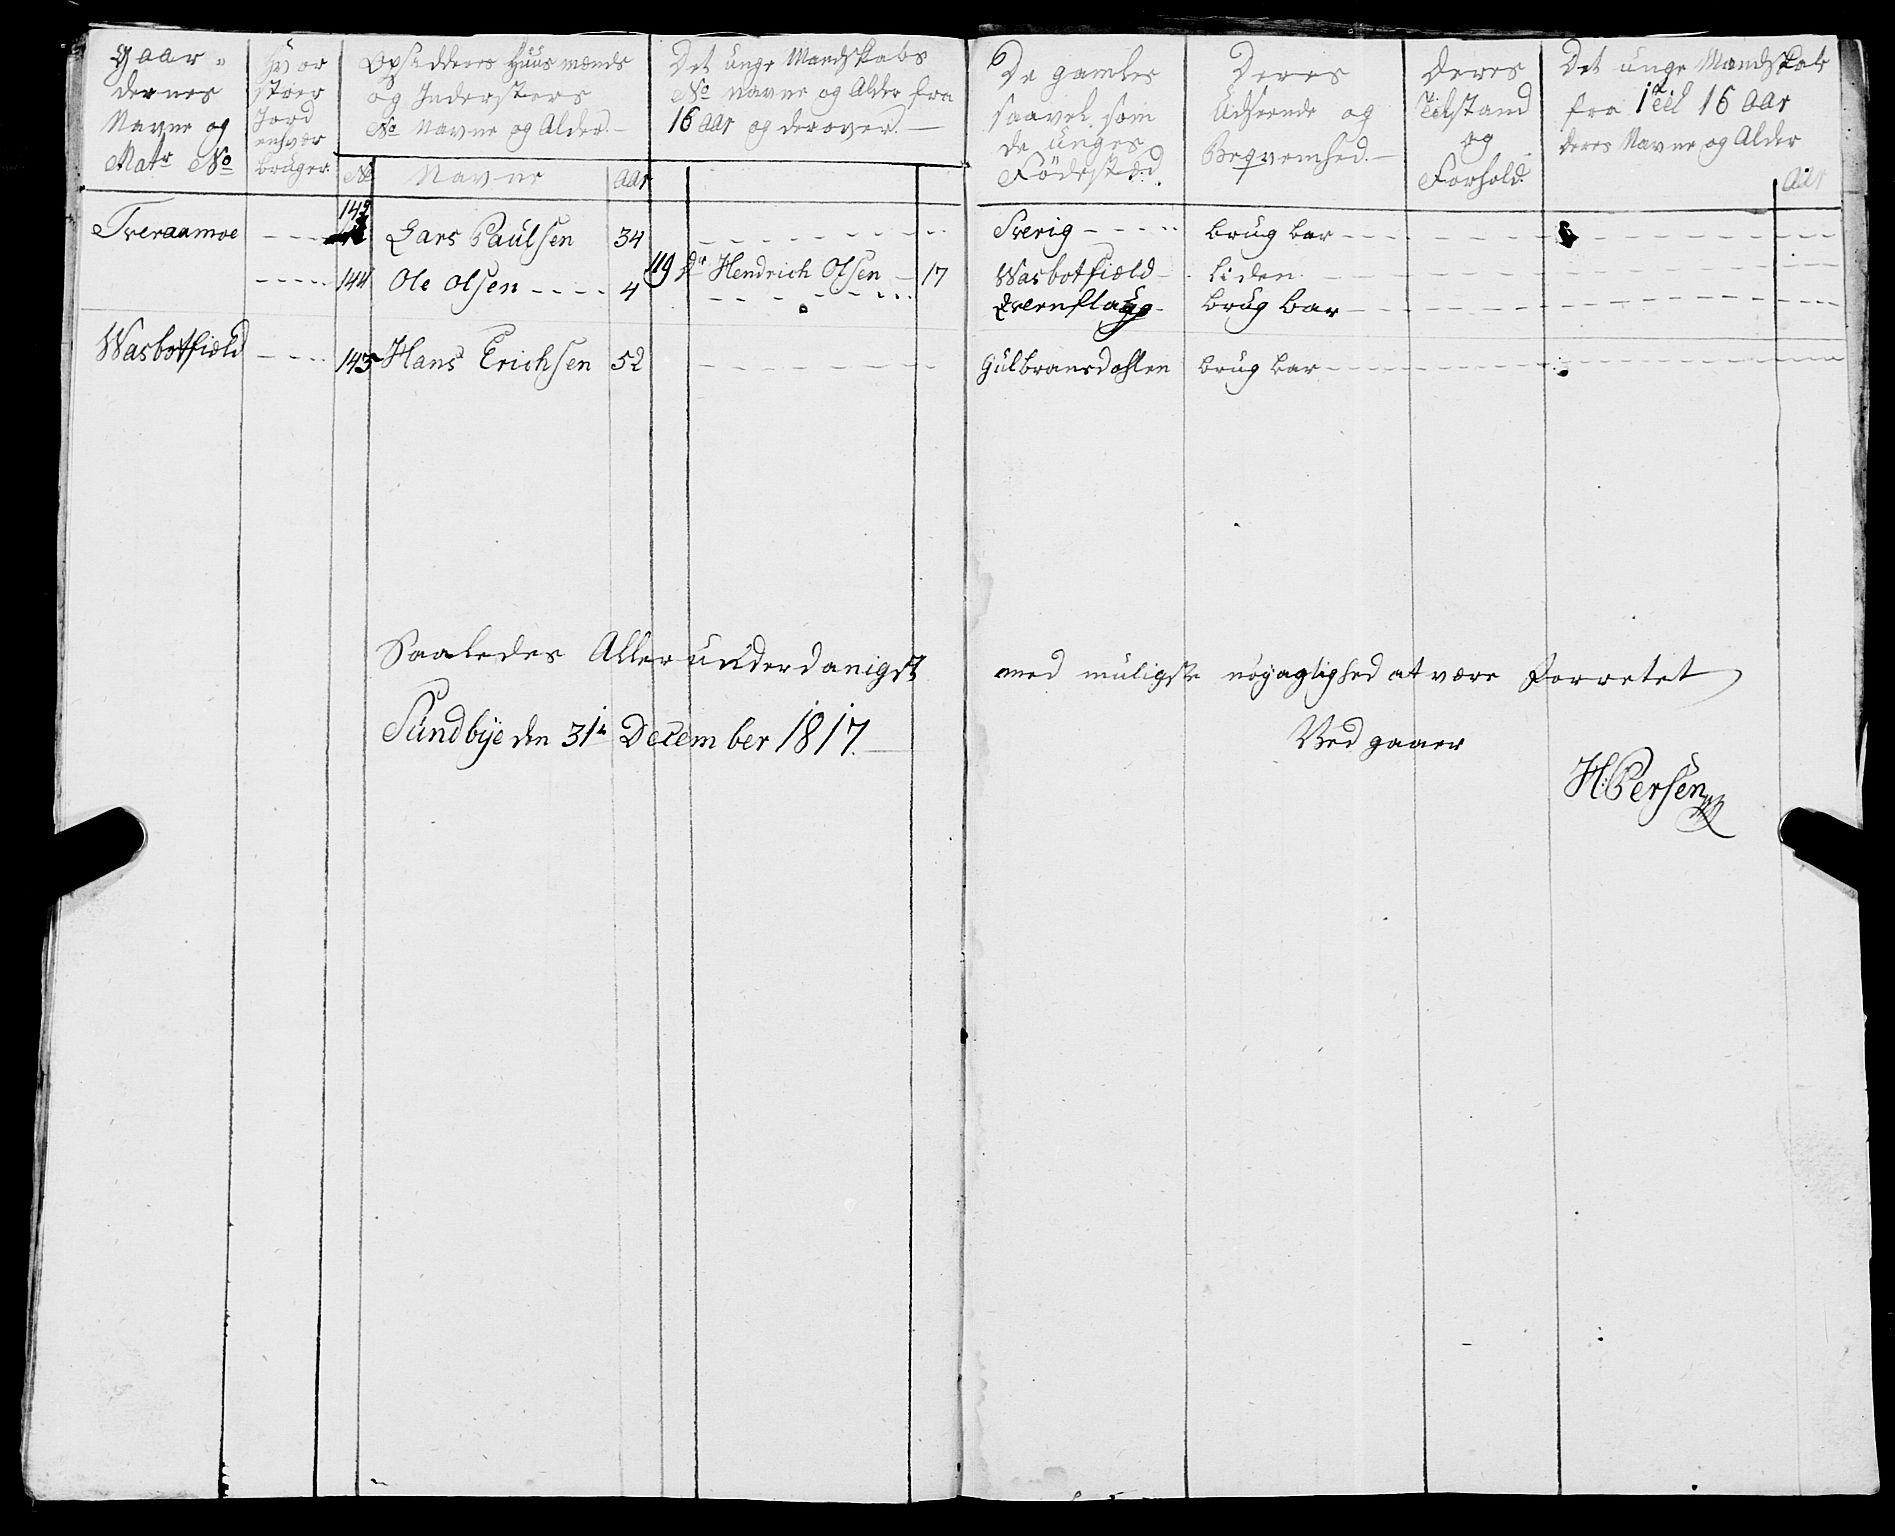 Gaar-
dernes
Navne og
Matr No
Hvor
stoer
Jord
enhver
bruger
Opsidderes Huusmænds
og Indersters
No Navne og Alder.
Det unge Mandskabs
No Navne og Alder fra
16 Aar og derover.
De gamles
saavel som
de unges
Födestæd.
Deres
Udseende og
Beqvemhed.
Deres
Tilstand
og
Forhold.
Det unge Mandskab
fra 1 til 16 Aar
deres Navne og Alder
No Navne Aar
Aar
Tveraamoe 142 Lars Paulsen 34 Sverig brugbar
144 Ole Olsen 4 119 Hendrich Olsen 17 Wasbotfield liden
brugbar
Wasbotfield 145 Hans Erichsen 52 Gulbransdahlen brugbar
Saaledes Allerunderdanigst med muligste nöyagtighed at være Forretet
Sundbye den 31te December 1817.
Ved gaaer
H: Persen